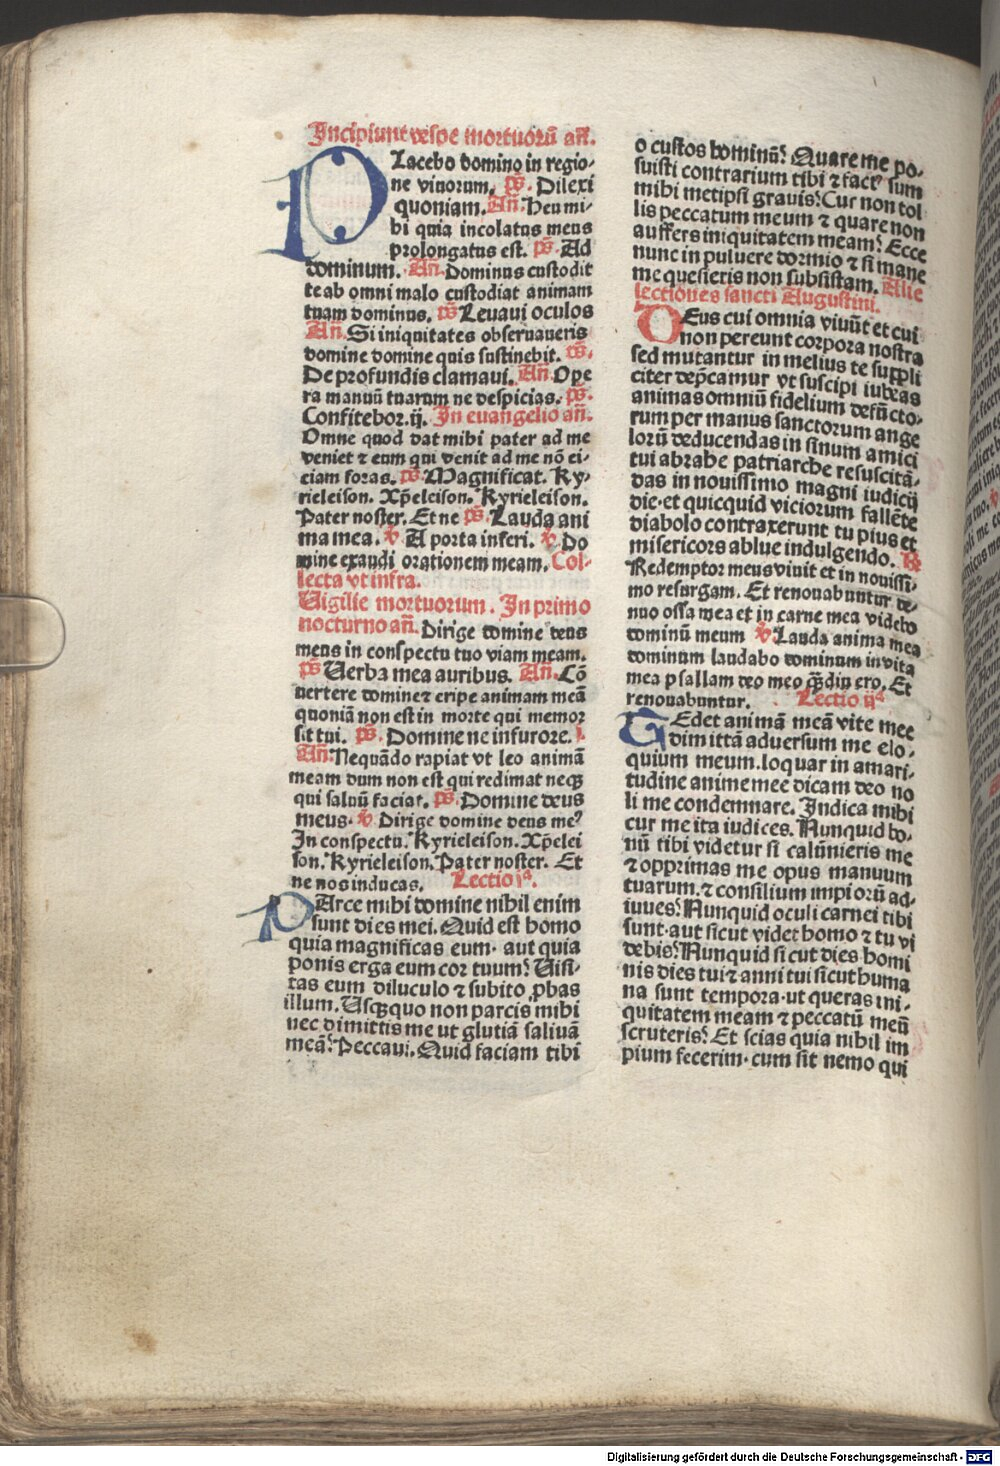 Incipiunt vespe mortuorū añ.
PLacebo domino in regio-
ne viuorum. ps̄. Dilexi
quoniam. Añ. Heu mi-
hi quia incolatus meus
prolongatus est. ps̄. Ad
dominum. Añ. Dominus custodit
te ab omni malo custodiat animam
tuam dominus. ps̄ Leuaui oculos
Añ. Si iniquitates obseruaueris
domine domine quis sustinebit. ps̄.
De profundis clamaui. Añ. Ope
ra manuū tuarum ne despicias. ps̄.
Confitebor.ij. In euangelio añ.
Omne quod dat mihi pater ad me
veniet ⁊ eum qui venit ad me nō ei-
ciam foras. ps̄ Magnificat. Ky-
rieleison. Xp̄eleison. Kyrieleison.
Pater noster. Et ne ps̄. Lauda ani
ma mea. v̄ A porta inferi. v̄. Do
mine exaudi orationem meam. Col-
lecta vt infra.
Vigilie mortuorum. In primo
nocturno añ. Dirige domine deus
meus in conspectu tuo viam meam.
ps̄ Verba mea auribus. Añ. Cō
uertere domine ⁊ eripe animam meā
quoniā non est in morte qui memor
sit tui. ps̄. Domine ne in furore. j.
Añ. Nequādo rapiat vt leo animā
meam dum non est qui redimat neqꝫ
qui saluū faciat. ps̄. Domine deus
meus. v̄ Dirige domine deus me⁹
In conspectu. Kyrieleison. Xp̄elei
son. Kyrieleison. Pater noster. Et
ne nos inducas. Lectio jª.
PArce mihi domine nihil enim
sunt dies mei. Quid est homo
quia magnificas eum· aut quia
ponis erga eum cor tuum? Visi-
tas eum diluculo ⁊ subito ꝓbas
illum. Vsqꝫquo non parcis mihi
nec dimittis me ut glutiā saliuā
meā? Peccaui. Quid faciam tibi
o custos hominū? Quare me po-
suisti contrarium tibi ⁊ fact⁹ sum
mihi metipsi grauis? Cur non tol
lis peccatum meum ⁊ quare non
auffers iniquitatem meam? Ecce
nunc in puluere dormio ⁊ si mane
me quesieris non subsistam. Alie
lectiones sancti Augustini.
DEus cui omnia viuūt et cui
non pereunt corpora nostra
sed mutantur in melius te suppli
citer dep̄camur vt suscipi iubeas
animas omniū fidelium defūcto-
rum per manus sanctorum ange
lorū deducendas in sinum amici
tui abrahe patriarche resuscitā-
das in nouissimo magni iudicij
die· et quicquid viciorum fallēte
diabolo contraxerunt tu pius et
misericors ablue indulgendo. R̄
Redemptor meus viuit et in nouissi-
mo resurgam. Et renouabuntur de-
nuo ossa mea et in carne mea videbo
dominū meum v̄ Lauda anima mea
dominum laudabo dominum in vita
mea psallam deo meo qꝫdiu ero. Et
renouabuntur. Lectio ijª
TEdet animā meā vite mee
dimittā aduersum me elo-
quium meum. loquar in amari-
tudine anime mee dicam deo no
li me condemnare. Indica mihi
cur me ita iudices. Nunquid bo-
nū tibi videtur si calūnieris me
⁊ opprimas me opus manuum
tuarum. ⁊ consilium impiorū ad-
iuues? Nunquid oculi carnei tibi
sunt· aut sicut videt homo ⁊ tu vi
debis? Nunquid sicut dies homi
nis dies tui ⁊ anni tui sicut huma
na sunt tempora· ut queras ini-
quitatem meam ⁊ peccatū meū
scruteris? Et scias quia nihil im
pium fecerim· cum sit nemo qui
Digitalisierung gefördert durch die Deutsche Forschungsgemeinschaft - DFG